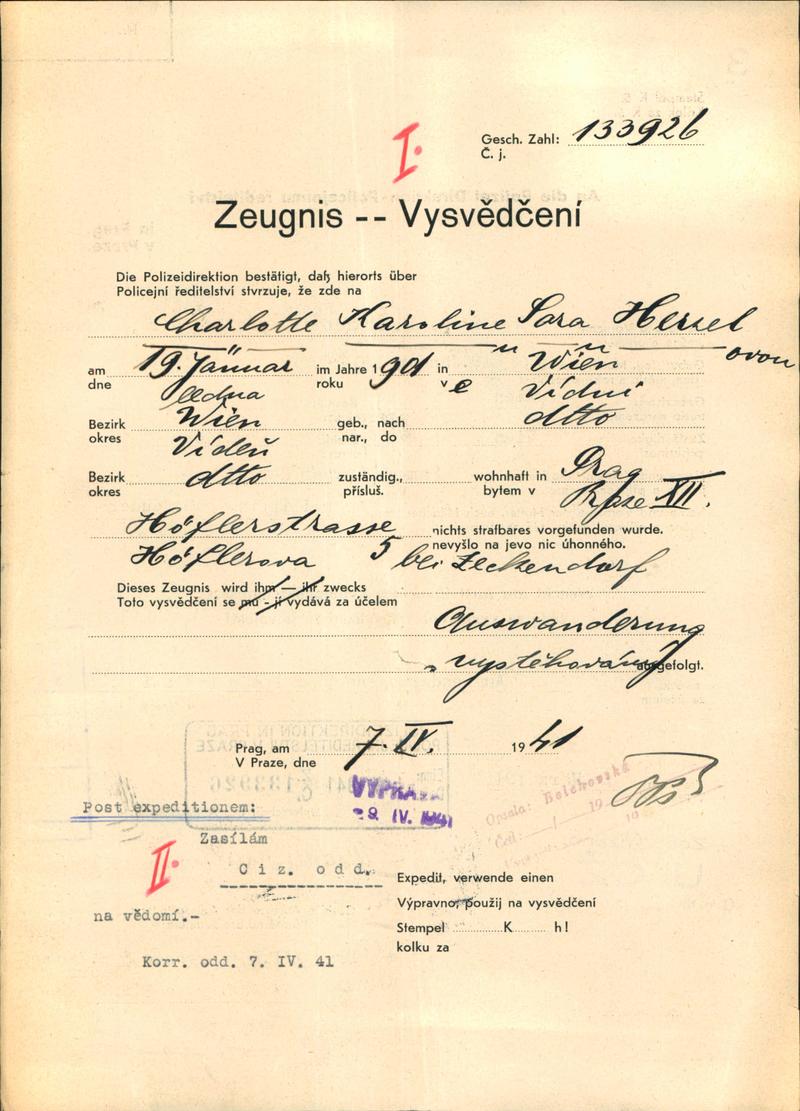 I.
Gesch. Zahl: 133926
Č. j.
Zeugnis -- Vysvědčení
Die Polizeidirektion bestätigt, daß hierorts über
Policejní ředitelství stvrzuje, že zde na
Charlotte Karoline Sara Herzel
ovou
am 19. Jänuar im Jahre 1901 in Wien
dne ledna roku v e Vídni
Bezirk Wien geb., nach dtto
okres Vídeň nar., do
Bezirk dtto zuständig., wohnhaft in Prag
okres přísluš. bytem v Praze XII.
Höflerstrasse nichts strafbares vorgefunden wurde.
nevyšlo na jevo nic úhonného.
Höflerova 5 bei Zeckendorf
Dieses Zeugnis wird ihm — ihr zwecks
Toto vysvědčení se mu - jí vydává za účelem
Auswanderung
vystěhování ausgefolgt.
Prag, am 7. IV. 1941
V Praze, dne
VYPRA
29. IV. 1941
Opsala: Bolehovská
Četl: / 19
Post expeditionem:
Zasílám
II.
Ciz. odd.
Expedit, verwende einen
na vědomí.-
Výpravno, použij na vysvědčení
Stempel K h!
kolku za
Korr. odd. 7. IV. 41